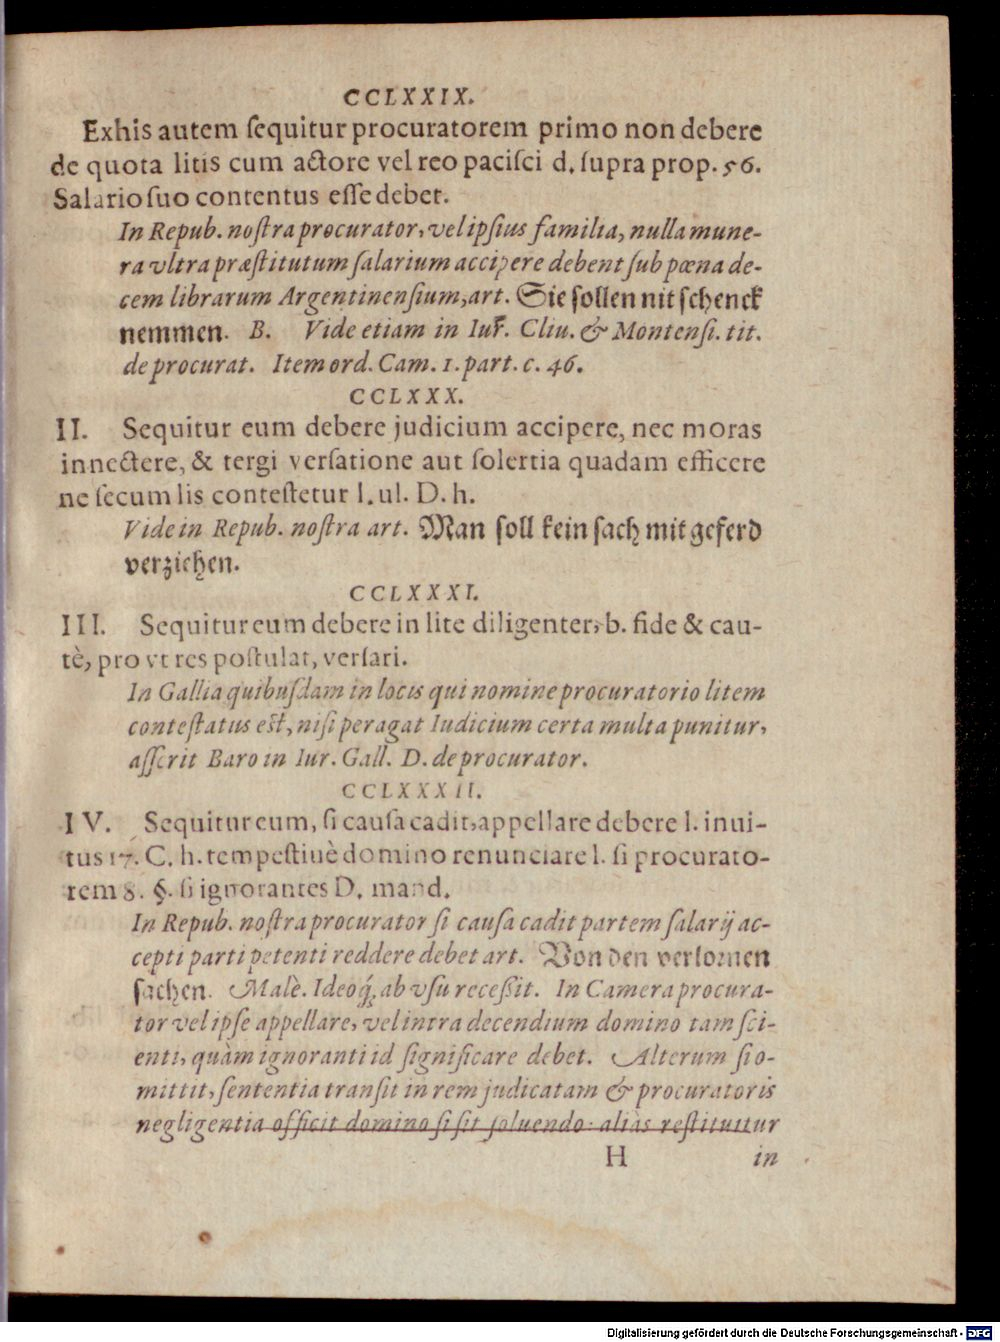 CCLXXIX.
Exhis autem ſequitur procuratorem primo non debere
de quota litis cum actore vel reo paciſci d. ſupra prop. 56.
Salario ſuo contentus eſſe debet.
In Repub. noſtra procurator, vel ipſius familia, nulla mune-
ra vltra præſtitutum ſalarium accipere debent ſub pœna de-
cem librarum Argentinenſium, art. Sie ſollen nit ſchenck
nemmen. B. Vide etiam in Iur. Cliu. & Montenſi. tit.
de procurat. Item ord. Cam. 1. part. c. 46.
CCLXXX.
II. Sequitur eum debere judicium accipere, nec moras
innectere, & tergi verſatione aut ſolertia quadam efficere
ne ſecum lis conteſtetur l. ul. D. h.
Vide in Repub. noſtra art. Man ſoll kein ſach mit geferd
verziehen.
CCLXXXI.
III. Sequitur eum debere in lite diligenter, b. fide & cau-
tè, pro vt res poſtulat, verſari.
In Gallia quibuſdam in locis qui nomine procuratorio litem
conteſtatus eſt, niſi peragat Iudicium certa multa punitur,
aſſerit Baro in Iur. Gall. D. de procurator.
CCLXXXII.
IV. Sequitur eum, ſi cauſa cadit, appellare debere l. inui-
tus 17. C. h. tempeſtiuè domino renunciare l. ſi procurato-
rem 8. §. ſi ignorantes D. mand.
In Repub. noſtra procurator ſi cauſa cadit partem ſalarij ac-
cepti parti petenti reddere debet art. Von den verlornen
ſachen. Malè. Ideoq́; ab vſu receßit. In Camera procura-
tor vel ipſe appellare, vel intra decendium domino tam ſci-
enti, quàm ignoranti id ſignificare debet. Alterum ſi o-
mittit, ſententia tranſit in rem judicatam & procuratoris
negligentia officit domino ſi ſit ſoluendo: aliàs reſtituitur
H in
Digitalisierung gefördert durch die Deutsche Forschungsgemeinschaft - DFG